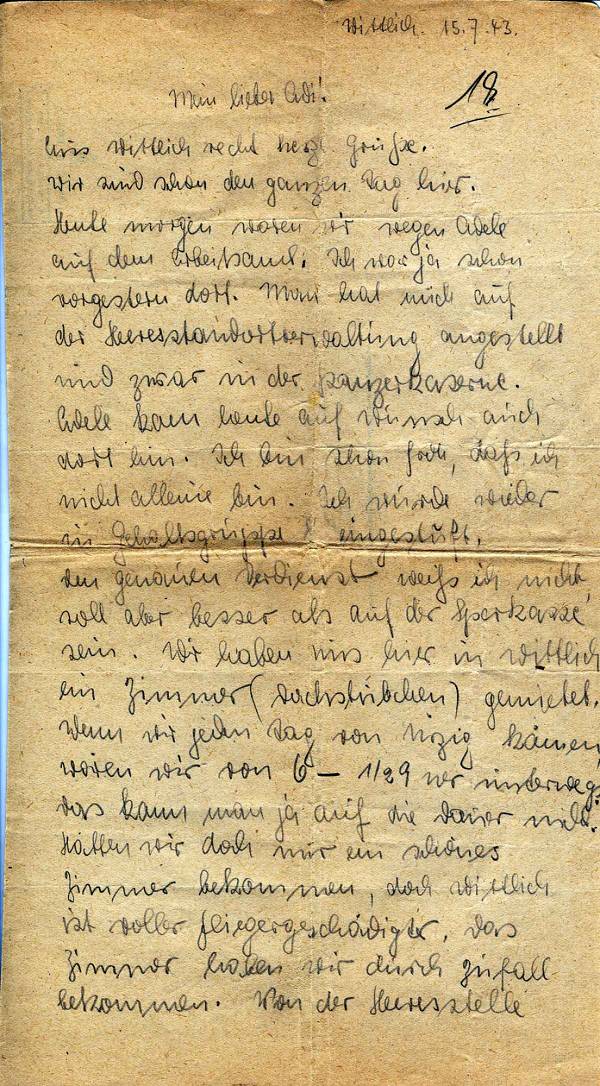 Wittlich. 15.7.43.
Mein lieber Adi!
18
Aus Wittlich recht herzl. Grüße.
Wir sind schon den ganzen Tag hier.
Heute morgen waren wir wegen Adele
auf dem Arbeitsamt. Ich war ja schon
vorgestern dort. Man hat mich auf
der Heeresstandortverwaltung angestellt
und zwar in der Panzerkaserne.
Adele kam heute auf Wunsch auch
dort hin. Ich bin schon froh, daß ich
nicht alleine bin. Ich wurde wieder
in Gehaltsgruppe 8 eingestuft.
Den genauen Verdienst weiß ich nicht,
soll aber besser als auf der Sparkasse
sein. Wir haben uns hier in Wittlich
ein Zimmer (Dachstübchen) gemietet.
Wenn wir jeden Tag von Ürzig kämen,
wären wir von 6 – 1/29 Uhr unterwegs
das kann man ja auf die Dauer nicht.
Hätten wir doch nur ein schönes
Zimmer bekommen, doch Wittlich
ist voller Fliegergeschädigter, das
Zimmer haben wir durch Zufall
bekommen. Von der Heeresstelle